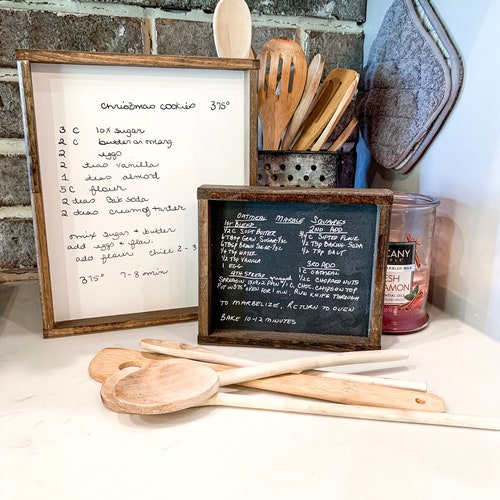 christmas cookies 375°
3 C 10x sugar
2 C butter or marg
2 eggs
2 teas vanilla
1 teas almond
5 C flour
2 teas Bak Soda
2 teas cream of tarter
mix sugar & butter
add eggs & flav.
add flour chill 2-3
375° 7-8 min
OATMEAL MARBLE SQUARES
1ST BLEND
1/2 C SOFT BUTTER
6 TBSP GRAN SUGAR
6 TBSP BROWN SUGAR
1/4 TSP WATER
1/2 TSP VANILLA
1 EGG
2ND ADD
3/4 C SIFTED FLOUR
1/2 TSP BAKING SODA
1/2 TSP SALT
3RD ADD
1 C OATMEAL
1/2 C CHOPPED NUTS
4TH SPREAD
13x9x2 PAN 1 C CHOC. CHIPS ON TOP
PUT INTO OVEN FOR 1 MIN. RUN KNIFE THROUGH
TO MARBELIZE, RETURN TO OVEN
BAKE 10-12 MINUTES